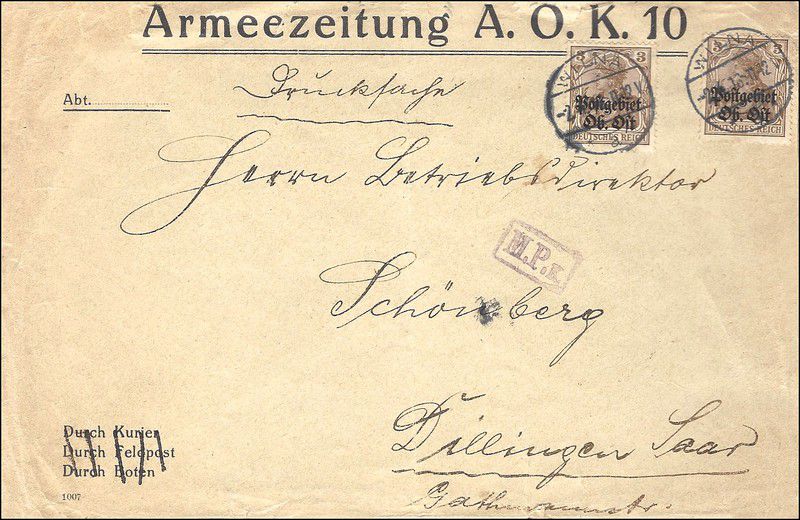 Armeezeitung A. O. K. 10
Abt.
Drucksache
3
Postgebiet
Ob. Ost
DEUTSCHES REICH
WILNA
3
Postgebiet
Ob. Ost
DEUTSCHES REICH
WILNA
Herrn Betriebsdirektor
M.P.K
Schönberg
Durch Kurier
Durch Feldpost
Durch Boten
Dillingen Saar
1007